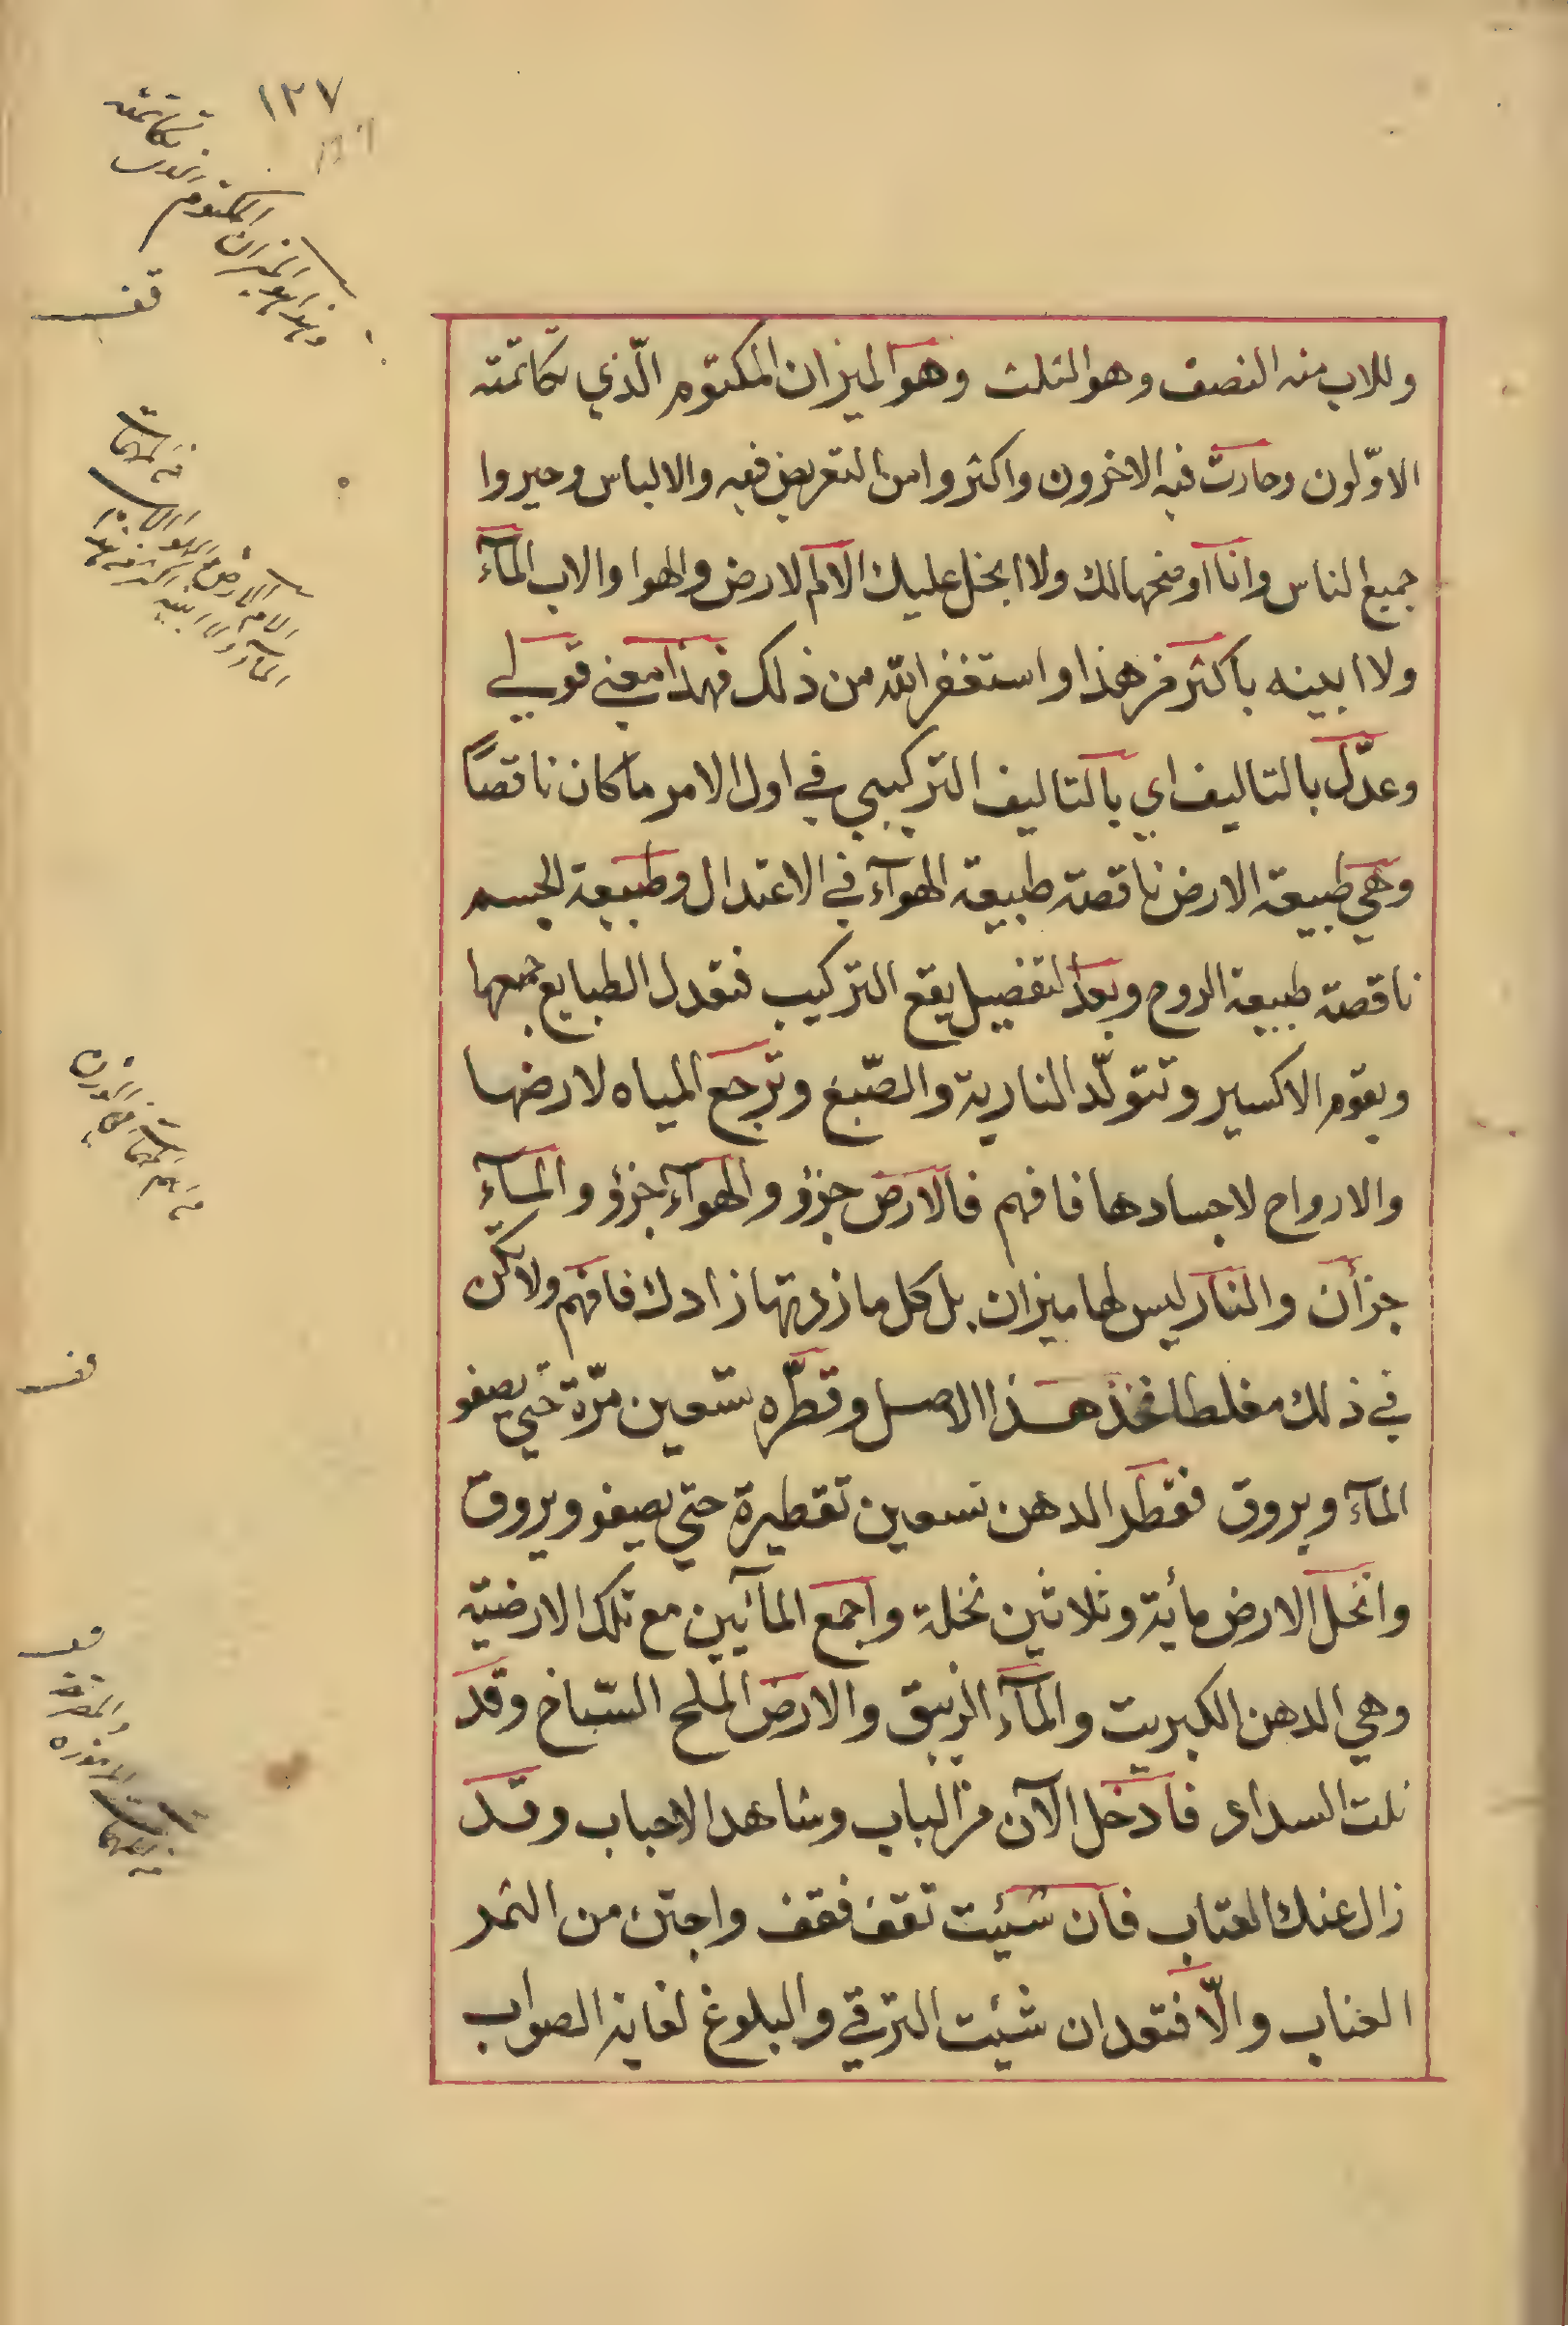 ١٢٧
وهذا هو الميزان
المكتوم
الذي
تكاتمته
قف
وللاب منه النصف وهو الثلث وهو الميزان المكتوم الّذي تكاتمته
الاوّلون وحارت فيه الاخرون واكثروا من التعريض فيه والالباس وحيروا
جميع الناس وانا اوضحها لك ولا ابخل عليك الام الارض والهوا والاب المآء
ولا ابينه باكثر من هذا واستغفر الله من ذلك فهذا معني قولي
وعدّل بالتاليف اي بالتاليف التركيبي في اول الامر ما كان ناقصاً
وهي طبيعة الارض ناقصة طبيعة الهوآء في الاعتدال وطبيعة الجسم
ناقصة طبيعة الروح وبعد التفصيل يقع التركيب فتعدل الطبايع جمعها
ويقوم الاكسير وتتولّد النارية والصّبغ وترجع المياه لارضها
والارواح لاجسادها فافهم فالارض جزؤ والهوآء جزؤ والمآء
جزأن والنار ليس لها ميزان بل كل ما زدتها زادك فافهم ولا تكن
في ذلك مغلطا فخذ هذا الاصل وقطّره تسعين مرّة حتي يصفو
المآء ويروق فقطر الدهن تسعين تقطيرة حتي يصفو ويروق
وانخل الارض مأية وثلاثين نخلة واجمع المآئين مع تلك الارضية
وهي الدهن الكبريت والمآء الزيبق والارض الملح السّباخ وقد
نلت السداد فادخل الآن من الباب وشاهد الاحباب وقد
زال عنك العتاب فان شئيت تقف فقف واجتن من الثمر
العناب والّا فتعد ان شئيت الترقي والبلوغ لغاية الصواب
الام الارض والهوا والاب
المآء ولا ابينه اكثر من هذا
قف
قف